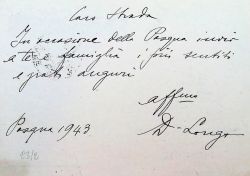 Caro Strada
In occasione della Pasqua invio
a te e famiglia i più sentiti
e grati auguri
aff.mo
Pasqua 1943
D. Longo